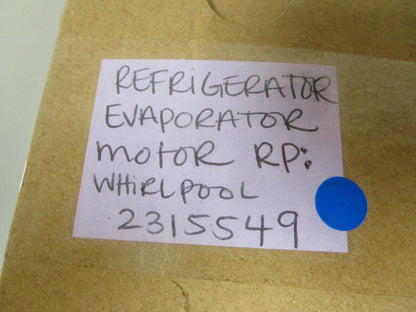 REFRIGERATOR
EVAPORATOR
MOTOR RP:
WHIRLPOOL
2315549